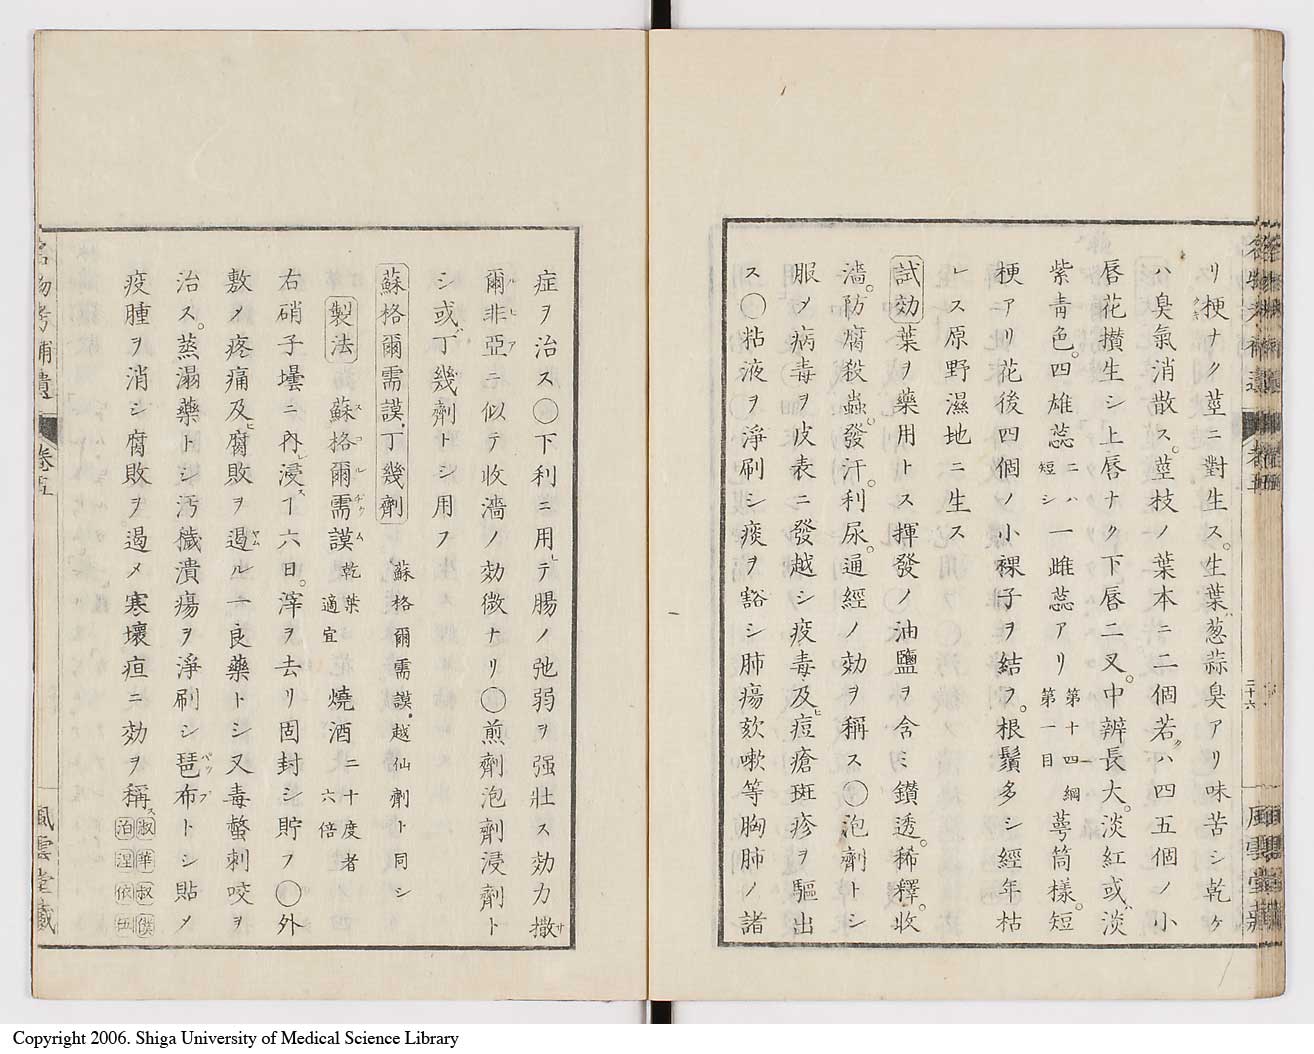 リ梗ナク莖ニ對生ス。生葉葱蒜臭アリ味苦シ乾ケ
ハ臭氣消散ス。莖枝ノ葉本ニ二個若クハ四五個ノ小
唇花攅生シ上唇ナク下唇二叉。中辨長大。淡紅或ハ淡
紫青色。四雄蕊二ハ短シ一雌蕊アリ第十四綱第一目萼筒様。短
梗アリ花後四個ノ小裸子ヲ結フ。根鬚多シ經年枯
レス原野濕地ニ生ス
試効葉ヲ藥用トス揮發ノ油鹽ヲ含ミ鑚透。稀釋。收
濇。防腐殺蟲。發汗。利尿。通經ノ効ヲ稱ス○泡劑トシ
服メ病毒ヲ皮表ニ發越シ疫毒及ヒ痘瘡斑疹ヲ驅出
ス○粘液ヲ淨刷シ痰ヲ豁シ肺瘍欬嗽等胸肺ノ諸
二十六
風雲堂藏
症ヲ治ス○下利ニ用ヒテ腸ノ弛弱ヲ强壯ス効力撒
爾非亞ニ似テ收濇ノ効微ナリ○煎劑泡劑浸劑ト
シ或ハ丁幾劑トシ用フ
蘇格爾需謨丁幾劑 蘇格爾需謨。越仙劑ト同シ
製法 蘇格爾需謨乾葉適宜 燒酒二十度者六倍
右硝子壜ニ內レ浸ス丁六日。滓ヲ去リ固封シ貯フ○外
敷メ疼痛及ヒ腐敗ヲ遏ムル一良藥トシ又毒螫刺咬ヲ
治ス。蒸溻藥トシ汚穢潰瘍ヲ淨刷シ琶布トシ貼メ
疫腫ヲ消シ腐敗ヲ遏メ寒壞疸ニ効ヲ稱ス
名物考補遺
卷五
風雲堂藏